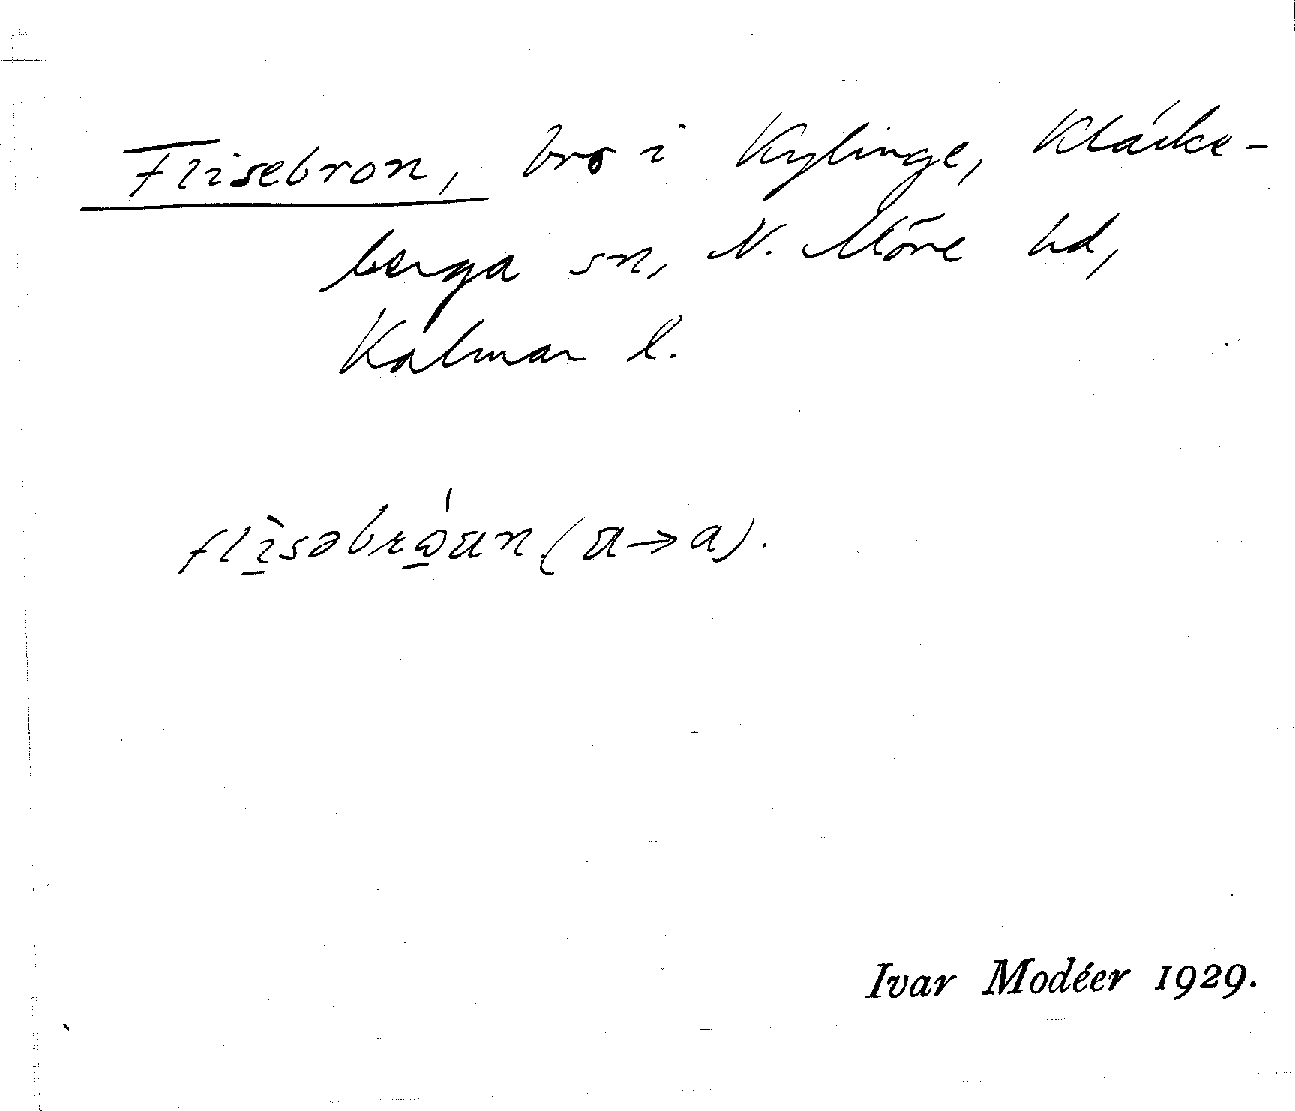 Flisebron, bro i Kylinge, Kläcke-
berga sn, N. Möre hd,
Kalmar l.
Ivar Modéer 1929.